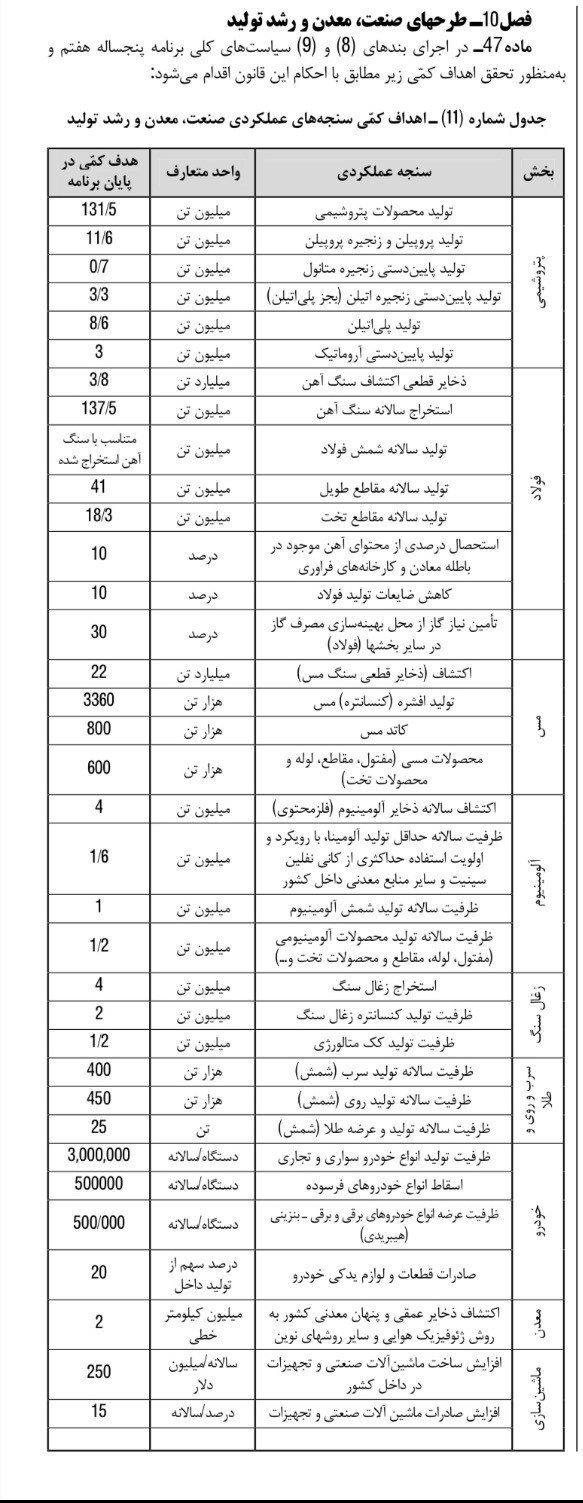 فصل10ـ طرحهای صنعت، معدن و رشد تولید
ماده47ـ در اجرای بندهای (8) و (9) سیاست‌های کلی برنامه پنجساله هفتم و
به‌منظور تحقق اهداف کمّی زیر مطابق با احکام این قانون اقدام می‌شود:
جدول شماره (11) ـ اهداف کمّی سنجه‌های عملکردی صنعت، معدن و رشد تولید
بخش سنجه عملکردی واحد متعارف هدف کمّی در
پایان برنامه
پتروشیمی
تولید محصولات پتروشیمی میلیون تن 131/5
تولید پروپیلن و زنجیره پروپیلن میلیون تن 11/6
تولید پایین‌دستی زنجیره متانول میلیون تن 0/7
تولید پایین‌دستی زنجیره اتیلن (بجز پلی‌اتیلن) میلیون تن 3/3
تولید پلی‌اتیلن میلیون تن 8/6
تولید پایین‌دستی آروماتیک میلیون تن 3
فولاد
ذخایر قطعی اکتشاف سنگ آهن میلیارد تن 3/8
استخراج سالانه سنگ آهن میلیون تن 137/5
تولید سالانه شمش فولاد میلیون تن متناسب با سنگ
آهن استخراج شده
تولید سالانه مقاطع طویل میلیون تن 41
تولید سالانه مقاطع تخت میلیون تن 18/3
استحصال درصدی از محتوای آهن موجود در
باطله معادن و کارخانه‌های فراوری درصد 10
کاهش ضایعات تولید فولاد درصد 10
تأمین نیاز گاز از محل بهینه‌سازی مصرف گاز
در سایر بخشها (فولاد) درصد 30
مس
اکتشاف (ذخایر قطعی سنگ مس) میلیارد تن 22
تولید افشره (کنسانتره) مس هزار تن 3360
کاتد مس هزار تن 800
محصولات مسی (مفتول، مقاطع، لوله و
محصولات تخت) هزار تن 600
آلومینیوم
اکتشاف سالانه ذخایر آلومینیوم (فلزمحتوی) میلیون تن 4
ظرفیت سالانه حداقل تولید آلومینا، با رویکرد و
اولویت استفاده حداکثری از کانی نفلین
سینیت و سایر منابع معدنی داخل کشور میلیون تن 1/6
ظرفیت سالانه تولید شمش آلومینیوم میلیون تن 1
ظرفیت سالانه تولید محصولات آلومینیومی
(مفتول، لوله، مقاطع و محصولات تخت و...) میلیون تن 1/2
زغال سنگ
استخراج زغال سنگ میلیون تن 4
ظرفیت تولید کنسانتره زغال سنگ میلیون تن 2
ظرفیت تولید کک متالورژی میلیون تن 1/2
سرب و روی و
طلا
ظرفیت سالانه تولید سرب (شمش) هزار تن 400
ظرفیت سالانه تولید روی (شمش) هزار تن 450
ظرفیت سالانه تولید و عرضه طلا (شمش) تن 25
خودرو
ظرفیت تولید انواع خودرو سواری و تجاری دستگاه/سالانه 3,000,000
اسقاط انواع خودروهای فرسوده دستگاه/سالانه 500000
ظرفیت عرضه انواع خودروهای برقی و برقی ـ بنزینی
(هیبریدی) دستگاه/سالانه 500/000
صادرات قطعات و لوازم یدکی خودرو درصد سهم از
تولید داخل 20
معدن
اکتشاف ذخایر عمقی و پنهان معدنی کشور به
روش ژئوفیزیک هوایی و سایر روشهای نوین میلیون کیلومتر
خطی 2
ماشین‌سازی
افزایش ساخت ماشین‌آلات صنعتی و تجهیزات
در داخل کشور سالانه/میلیون
دلار 250
افزایش صادرات ماشین آلات صنعتی و تجهیزات درصد/سالانه 15